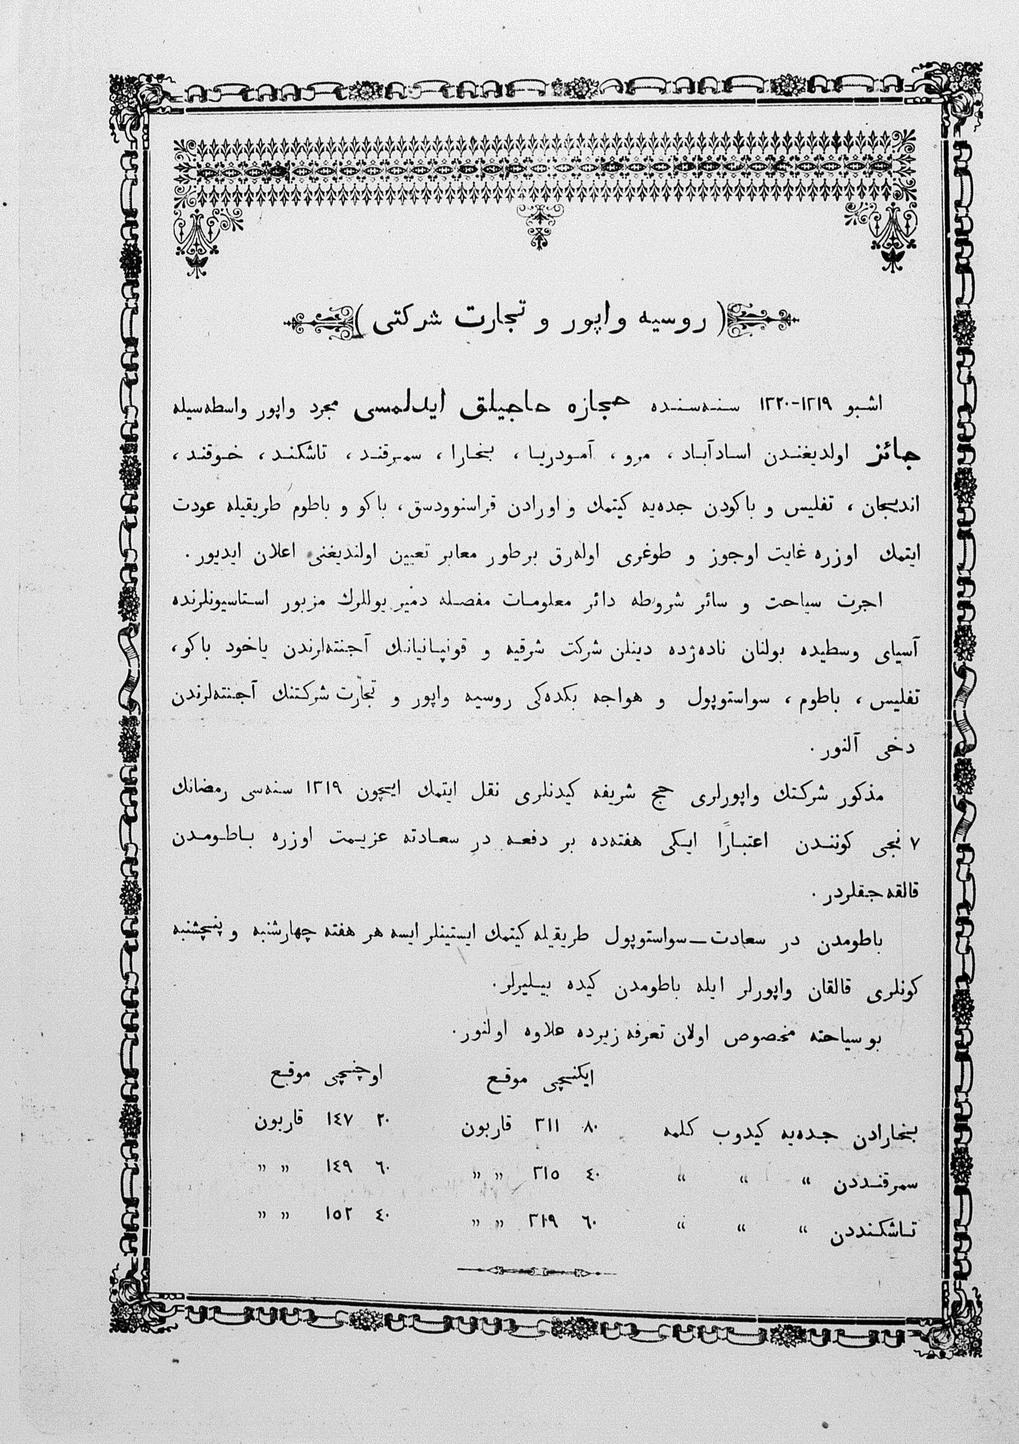 ( روسیه واپور و تجارت شرکتی )
اشبو ١٣١٩-١٣٢٠ سنه‌سنده حجازه حاجیلق ایدلمسی مجرد واپور واسطه‌سیله
جائز اولدیغندن اساد آباد ، مرو ، آمودریا ، بخارا ، سمرقند ، تاشکند ، خوقند ،
اندیجان ، تفلیس و باکودن جده‌یه کیتمك و اورادن قراسنوودسق ، باکو و باطوم طریقیله عودت
ایتمك اوزره غایت اوجوز و طوغری اوله‌رق برطور معابر تعیین اولندیغنی اعلان ایدیور .
اجرت سیاحت و سائر شروطه دائر معلومات مفصله دمیر یوللرك مزبور استاسیونلرنده
آسیای وسطیده بولنان ناده‌ژده دینلن شرکت شرقیه و قونپانیانك آجنته‌لرندن یاخود باکو ،
تفلیس ، باطوم ، سواستوپول و هواجه بکده‌کی روسیه واپور و تجارت شرکتنك آجنته‌لرندن
دخی آلنور .
مذکور شرکتك واپورلری حج شریفه کیدنلری نقل ایتمك ایچون ١٣١٩ سنه‌سی رمضانك
٧ نجی کونندن اعتبارًا ایکی هفته‌ده بر دفعه در سعادته عزیمت اوزره باطومدن
قالقه جقلردر .
باطومدن در سعادت — سواستوپول طریقیله کیتمك ایستینلر ایسه هر هفته چهارشنبه و پنچشنبه
کونلری قالقان واپورلر ایله باطومدن کیده بیلیرلر .
بو سیاحته مخصوص اولان تعرفه زیرده علاوه اولنور .
ایکنچی موقع اوچنچی موقع
بخارادن جده‌یه کیدوب کلمه ٨٠ ٢١١ قاربون ٢٠ ١٤٧ قاربون
سمرقنددن " " " ٤٠ ٢١٥ " " ٦٠ ١٤٩ " "
تاشکنددن " " " ٦٠ ٢١٩ " " ٤٠ ١٥٢ " "